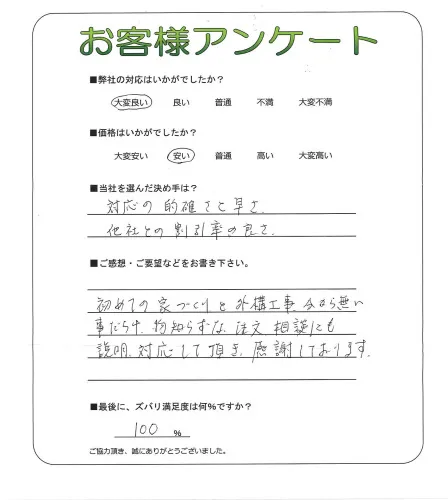 お客様アンケート
■弊社の対応はいかがでしたか？
大変良い 良い 普通 不満 大変不満
■価格はいかがでしたか？
大変安い 安い 普通 高い 大変高い
■当社を選んだ決め手は？
対応の的確さと早さ.
他社との割引率の良さ.
■ご感想・ご要望などをお書き下さい。
初めての家づくりと外構工事.
事だらけ. 物知らずな、注文 相談にも
説明.対応して頂き、感謝しております.
■最後に、ズバリ満足度は何％ですか？
100 %
ご協力頂き、誠にありがとうございました。